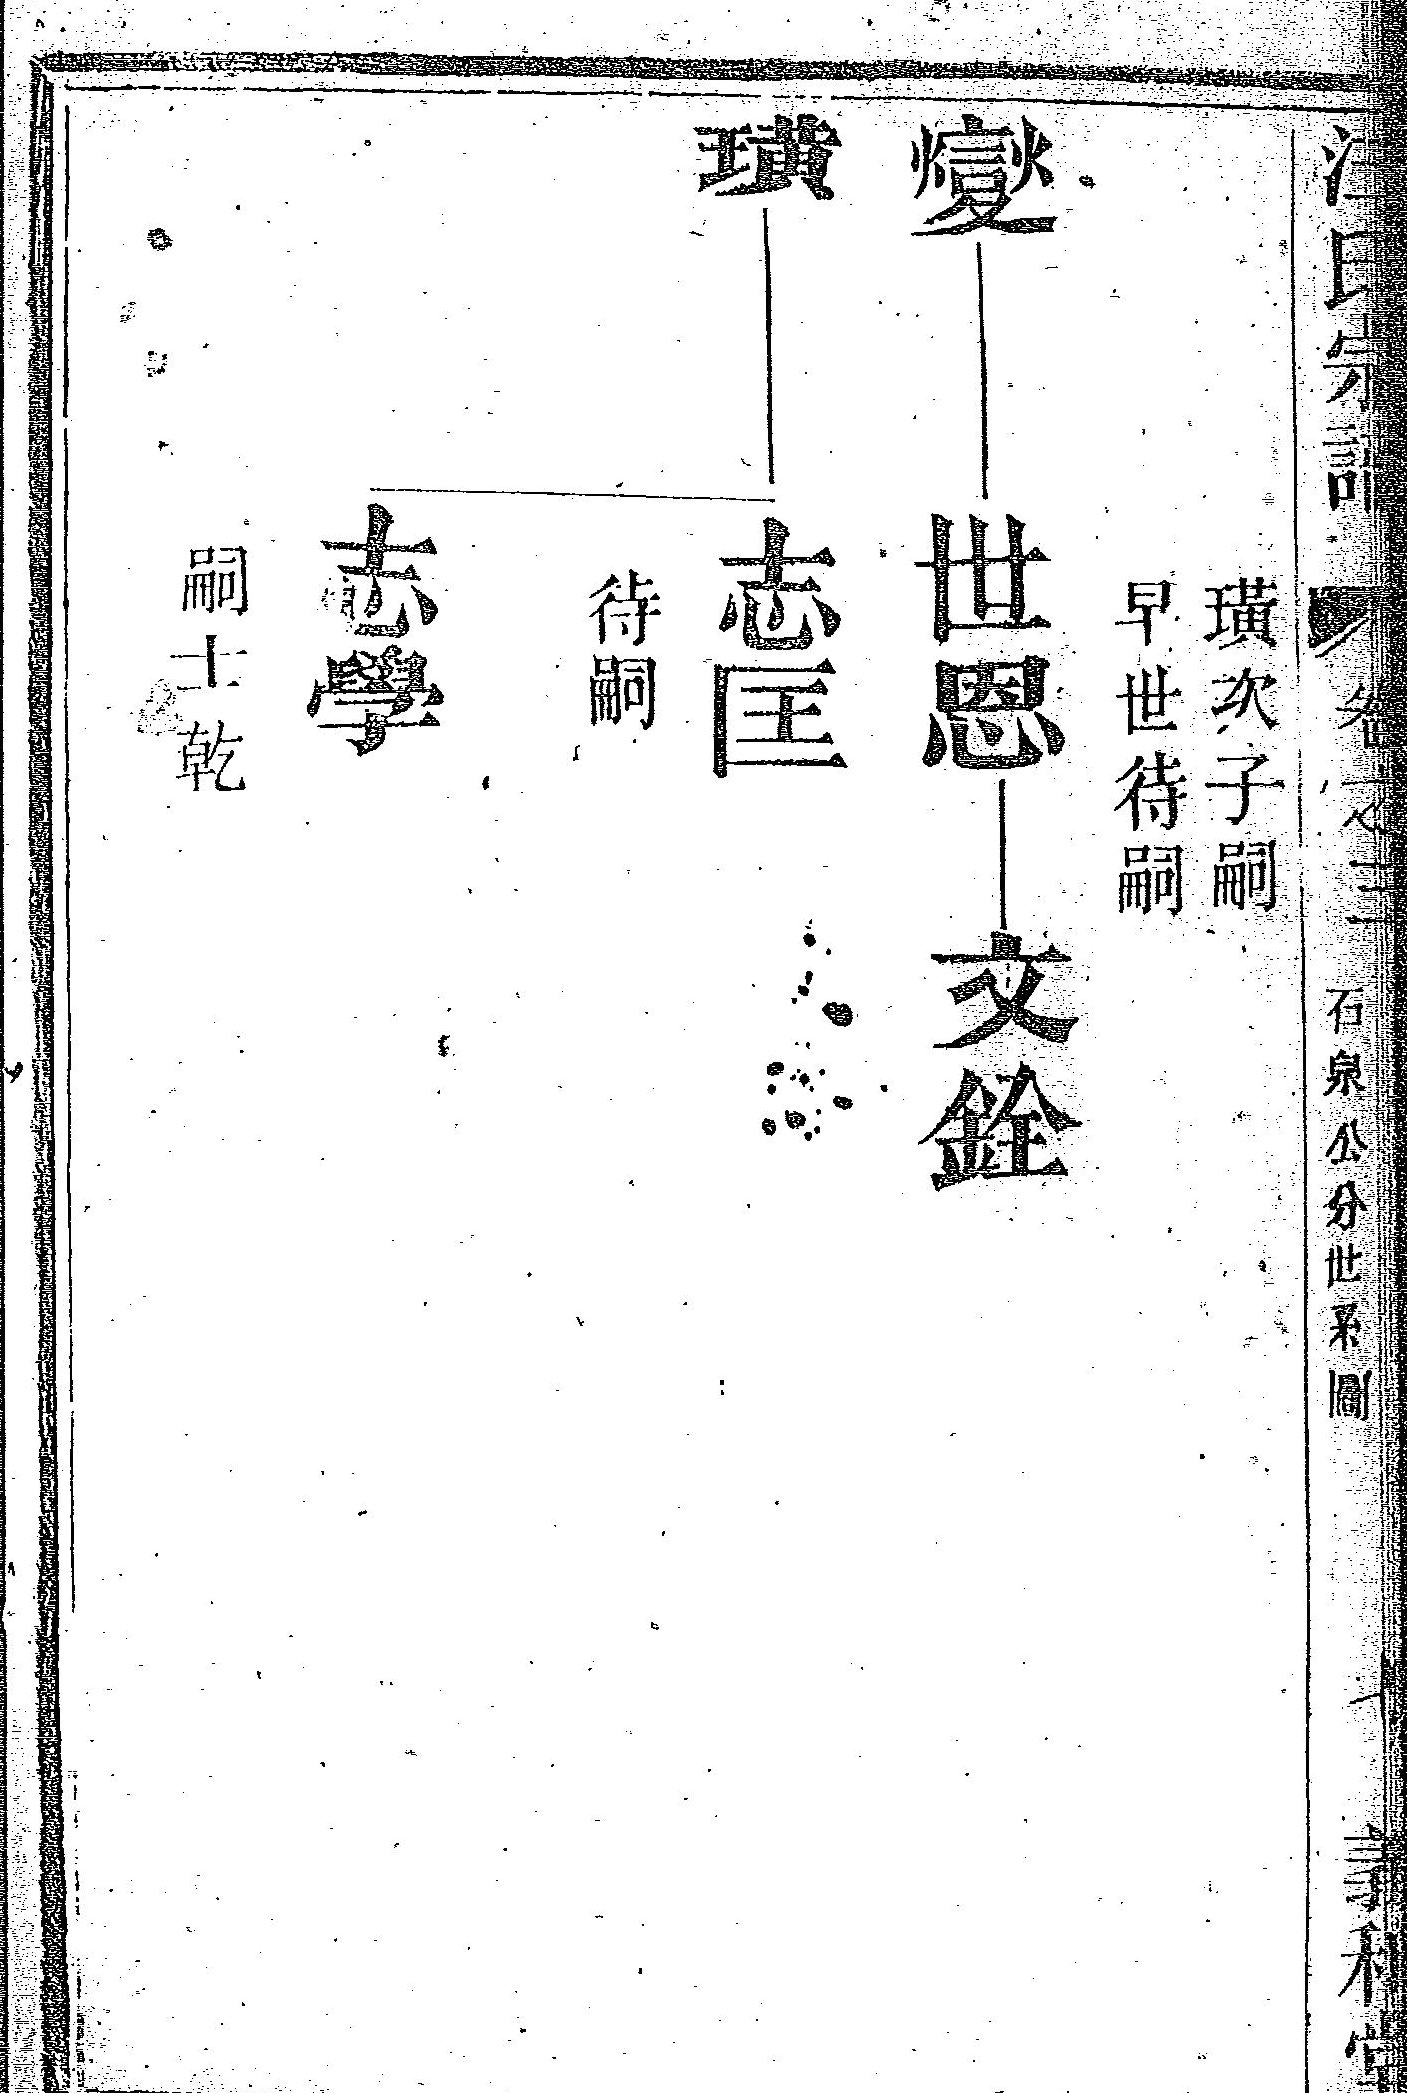 氏宗譜
卷之三
石泉公分世系圖
璜次子嗣
早世待嗣
燮
世恩
文銓
璜
志匡
待嗣
志學
嗣士乾